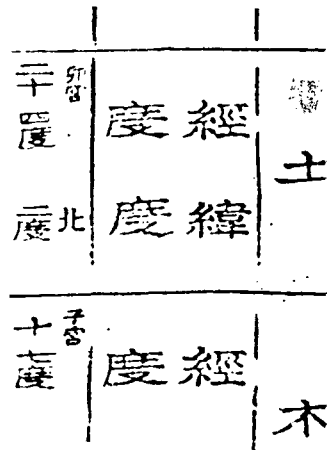 土
經度
卯宮
二十四度
緯度
北
二度
木
經度
子宮
十七度